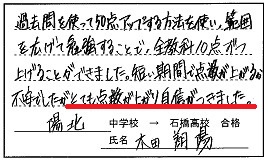 過去問を使って50点アップする方法を使い、範囲
を広げて勉強することで、全教科10点ずつ
上げることができました。短い期間で点数が上がるか
不安でしたがとても点数が上がり自信がつきました。
陽北 中学校 → 石橋高校 合格
氏名 木田 翔陽